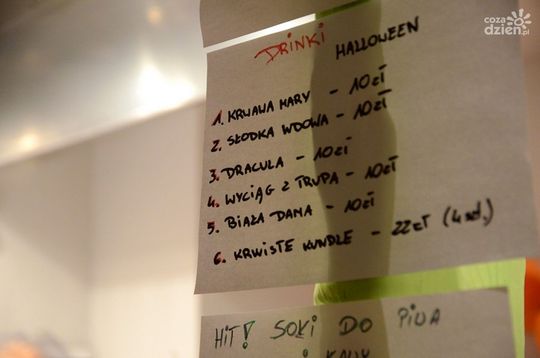 coza
dzien.pl
DRINKI HALLOWEEN
1. KRWAWA MARY - 10zł
2. SŁODKA WDOWA - 10zł
3. DRACULA - 10zł
4. WYCIĄG Z TRUPA - 10zł
5. BIAŁA DAMA - 10zł
6. KRWISTE KUNDLE - 22zł (4szt.)
HIT! SOKI DO PIWA